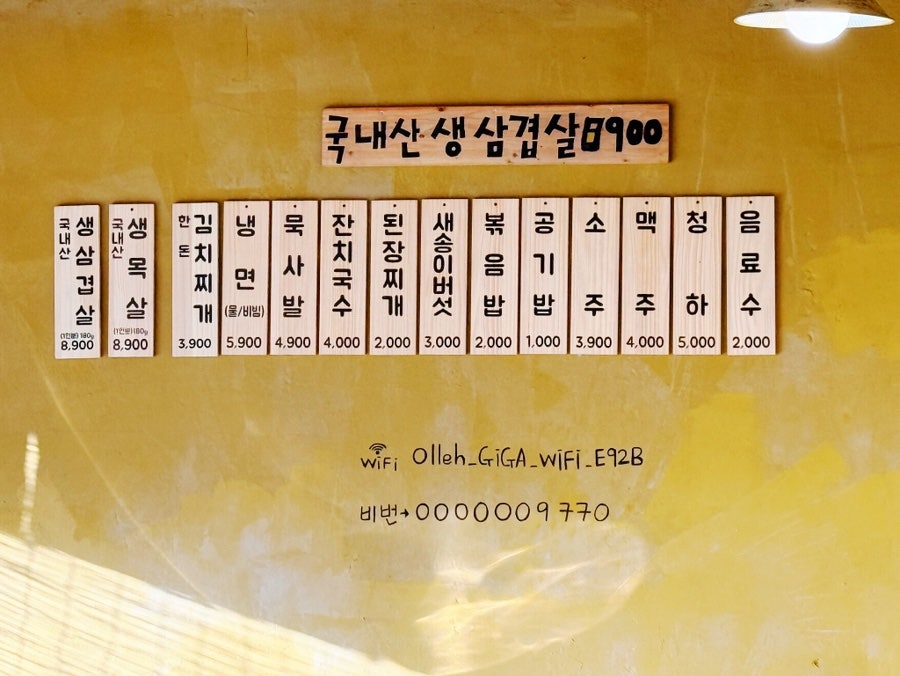 국내산 생 삼겹살 8900
국내산 생삼겹살 (1인분) 180g 8,900
국내산 생목살 (1인분) 180g 8,900
한돈 김치찌개 3,900
냉면 (물/비빔) 5,900
묵사발 4,900
잔치국수 4,000
된장찌개 2,000
새송이버섯 3,000
볶음밥 2,000
공기밥 1,000
소주 3,900
맥주 4,000
청하 5,000
음료수 2,000
WiFi Olleh_GiGA_WiFi_E92B
비번→0000009770